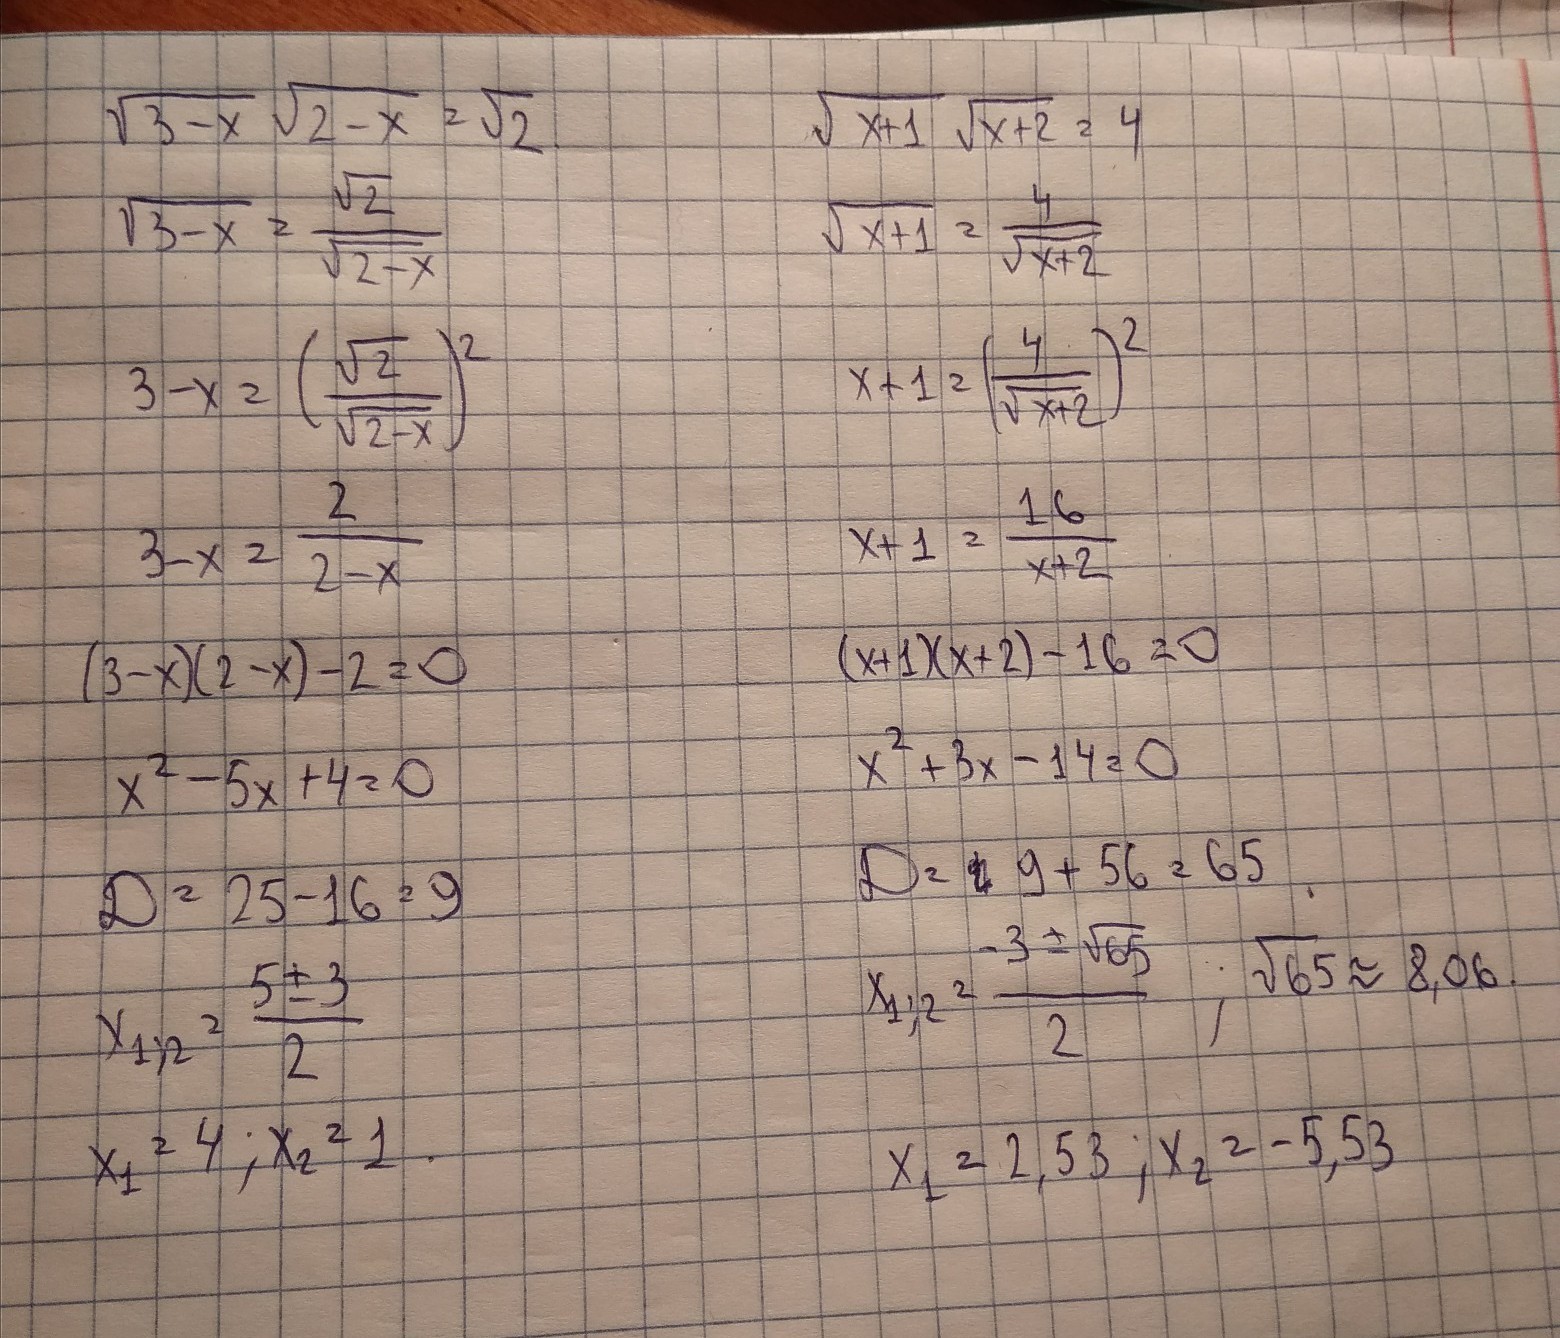 √(3-x) √(2-x) = √2
√(3-x) = √2/√(2-x)
3-x = (√2/√(2-x))²
3-x = 2/(2-x)
(3-x)(2-x)-2=0
x²-5x+4=0
D = 25-16=9
x₁;₂ = (5±3)/2
x₁ = 4; x₂ = 1.
√(x+1) √(x+2) = 4
√(x+1) = 4/√(x+2)
x+1 = (4/√(x+2))²
x+1 = 16/(x+2)
(x+1)(x+2)-16=0
x²+3x-14=0
D = 9+56=65
x₁;₂ = (-3±√65)/2 ; √65≈8,06.
x₁ = 2,53; x₂ = -5,53